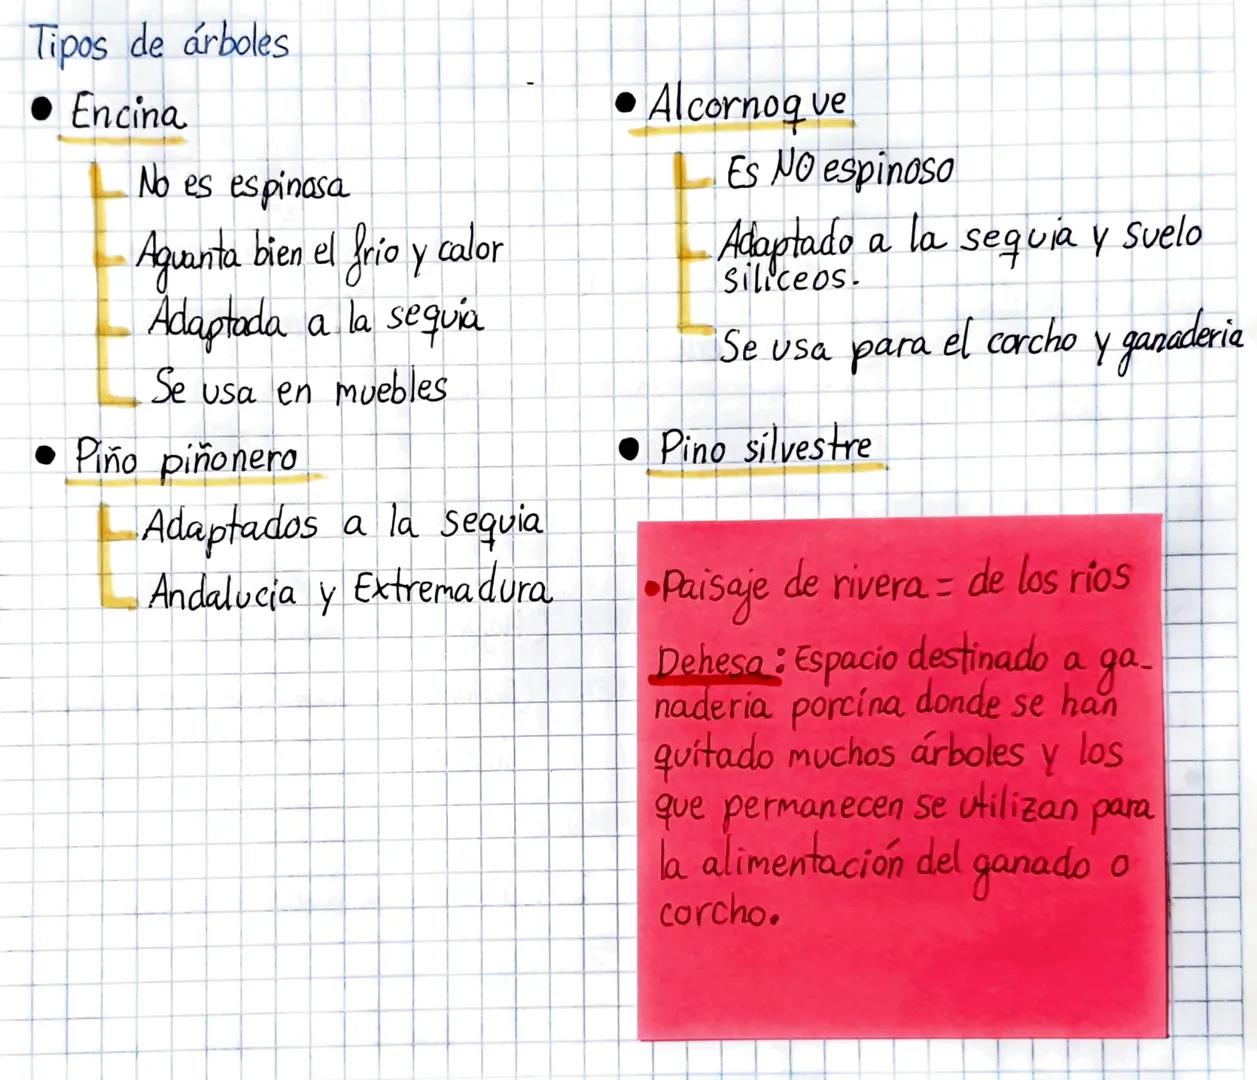 Tipos de árboles
• Encina
No es espinosa
Aguanta bien el frio y calor
Adaptada a la sequia
Se usa en muebles
• Piño piñonero
Adaptados a la sequia
Andalucia y Extremadura
• Alcornoque
Es NO espinoso
Adaptado a la sequia y suelo
siliceos.
Se usa para el corcho y ganaderia
• Pino silvestre
•Paisaje de rivera = de los rios
Dehesa: Espacio destinado a ga-
naderia porcina donde se han
quitado muchos árboles y los
que permanecen se utilizan para
la alimentación del ganado o
corcho.